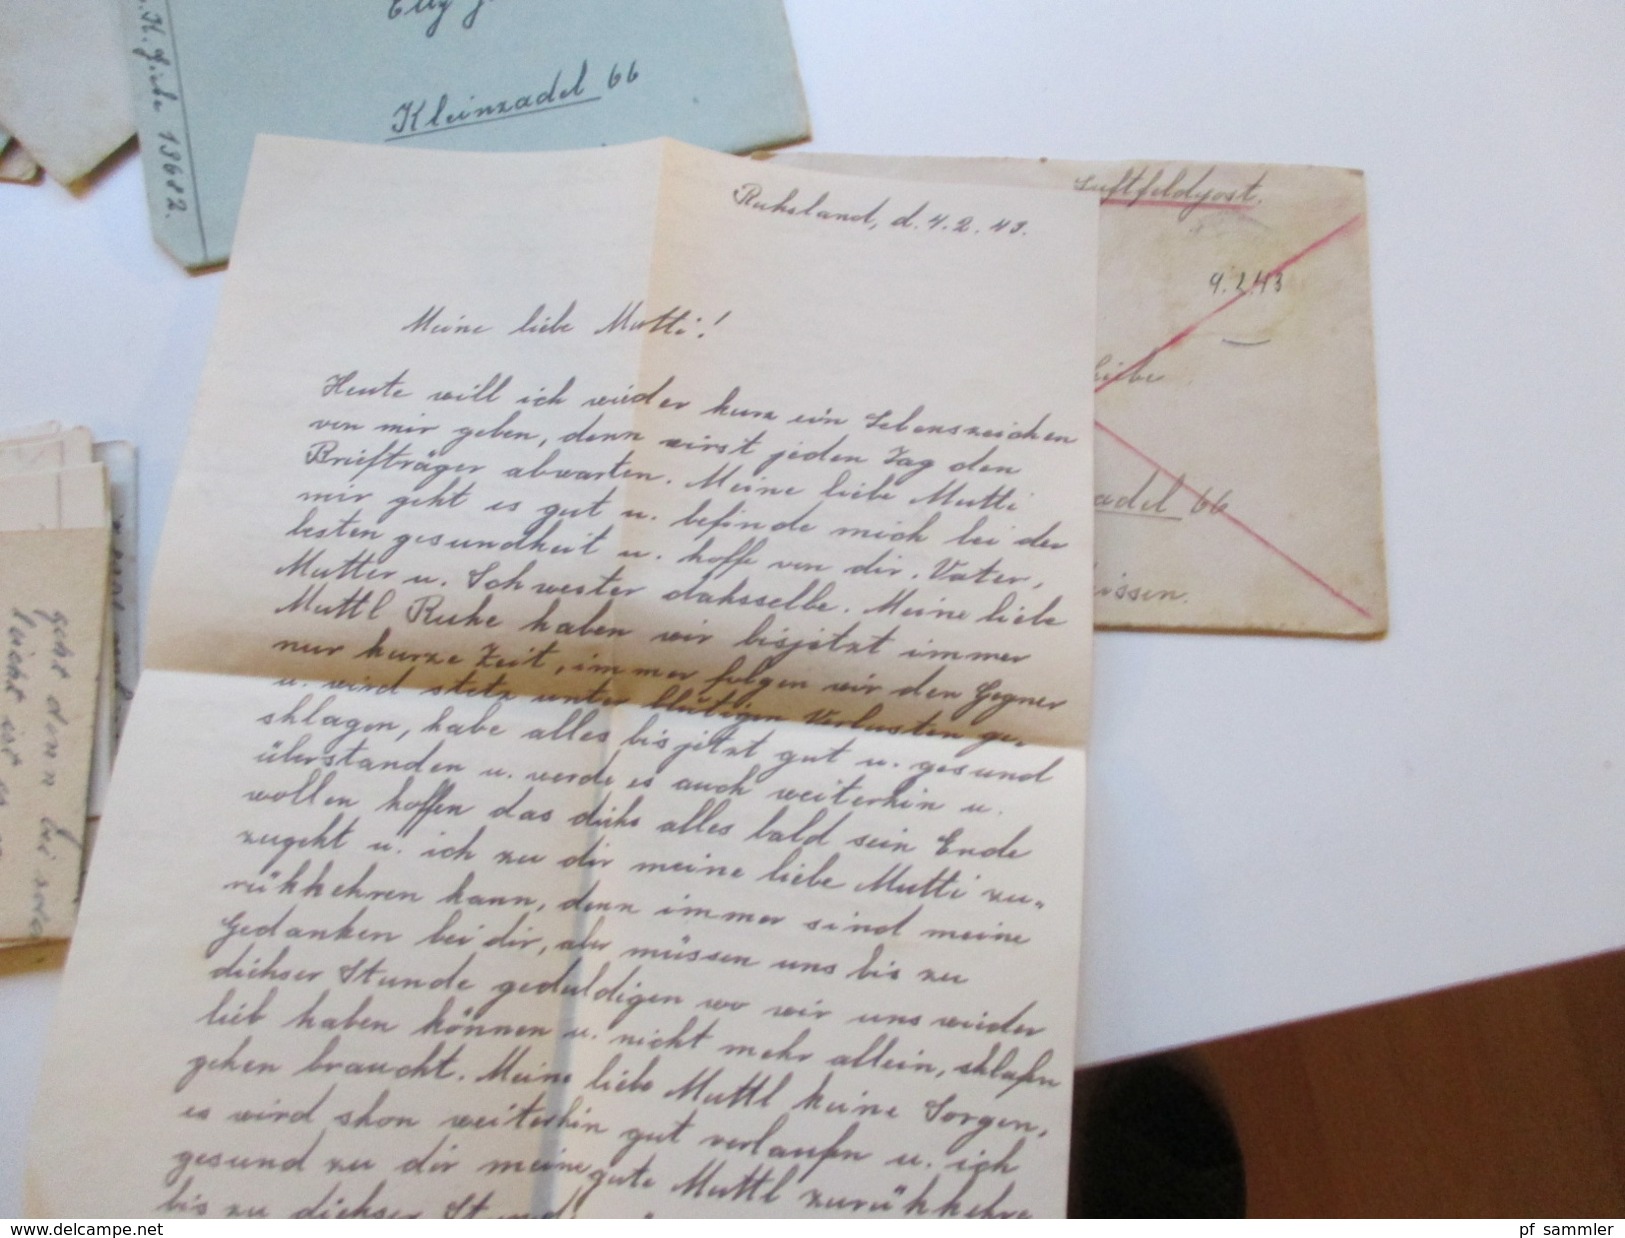 Elly
Kleinzadel 66
Giebe 13682.
Luftfeldpost.
4.2.43
adel 66
issen.
Ruhsland, d. 4.2.43.
Meine liebe Mutti!
Heute will ich wieder kurz ein Lebenszeichen
von mir geben, denn wirst jeden Tag den
Briefträger abwarten. Meine liebe Mutti
mir geht es gut u. befinde mich bei der
besten gesundheit u. hoffe von dir, Vater,
Mutter u. Schwester dahsselbe. Meine liebe
Muttl Ruhe haben wir bisjetzt immer
nur kurze Zeit, immer folgen wir den Gegner
u. wird stetz unter blutigen Verlusten ge-
shlagen, habe alles bis jetzt gut u. gesund
überstanden u. werde es auch weiterhin u.
wollen hoffen das diehs alles bald sein Ende
zugeht u. ich zu dir meine liebe Mutti zu-
rükkehren kann, denn immer sind meine
Gedanken bei dir, aber müssen uns bis zu
diehser Stunde geduldigen wo wir uns wieder
lieb haben können u. nicht mehr allein, shlafen
gehen braucht. Meine liebe Muttl keine Sorgen,
es wird shon weiterhin gut verlaufen u. ich
gesund zu dir meine gute Muttl zurükkehre
bis zu diehser
geht denn bei
leicht ist
www.delcampe.net
pf_sammler